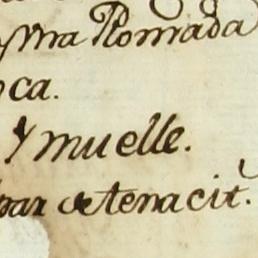 Plomada
oca.
y muelle.
par de tenacil.